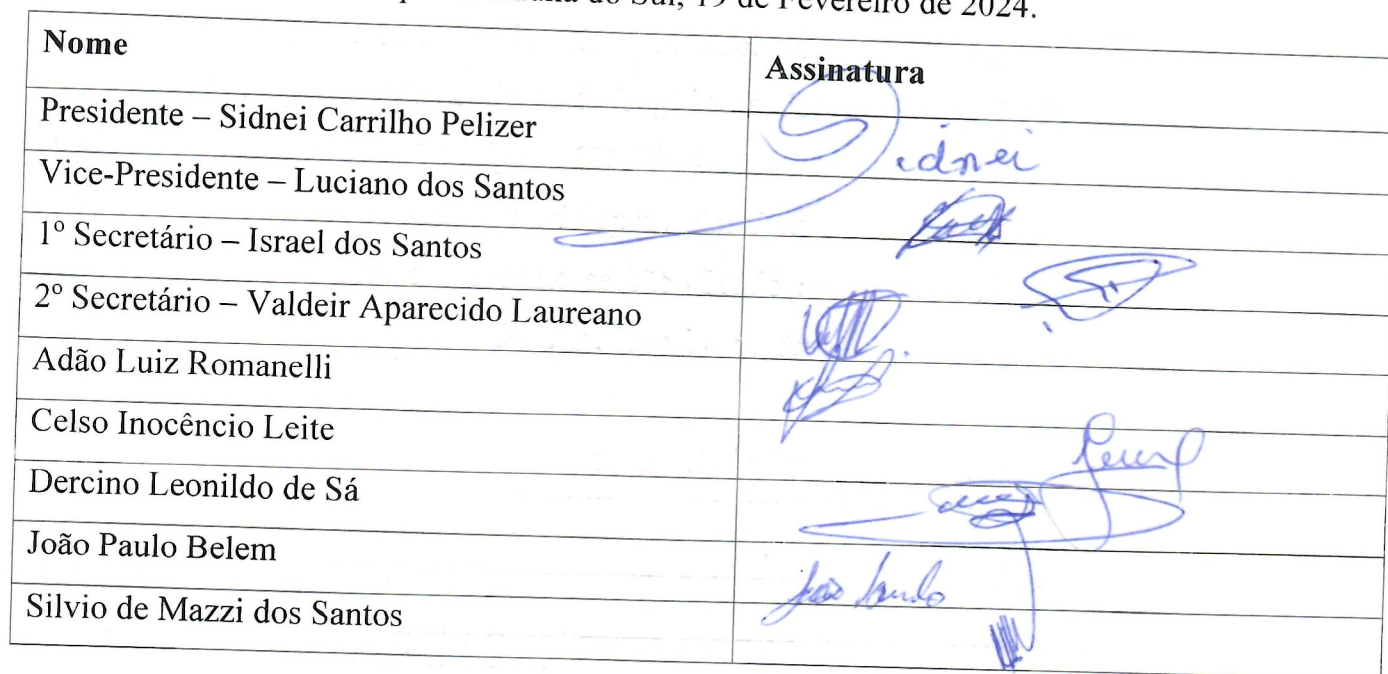 do Sul, 19 de Fevereiro de 2024.
Nome Assinatura
Presidente – Sidnei Carrilho Pelizer Sidnei
Vice-Presidente – Luciano dos Santos
1º Secretário – Israel dos Santos
2º Secretário – Valdeir Aparecido Laureano
Adão Luiz Romanelli
Celso Inocêncio Leite
Dercino Leonildo de Sá
João Paulo Belem João Paulo
Silvio de Mazzi dos Santos